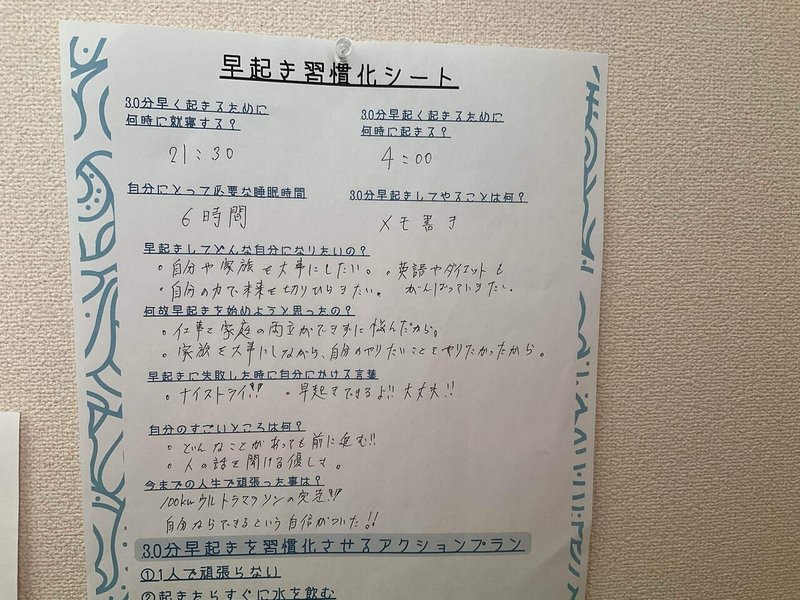 早起き習慣化シート
30分早く起きるために
何時に就寝する?
21:30
30分早起く起きるために
何時に起きる?
4:00
自分にとって必要な睡眠時間
6時間
30分早起きしてやることは何?
メモ書き
早起きしてどんな自分になりたいの?
・自分や家族を大事にしたい。
・自分の力で未来を切りひらきたい。
・英語やダイエットも
がんばっていきたい。
何故早起きを始めようと思ったの?
・仕事と家庭の両立ができずに悩んだから。
・家族を大事にしながら、自分のやりたいことをやりたかったから。
早起きに失敗した時に自分にかける言葉
・ナイストライ!!
・早起きできるよ!! 大丈夫!!
自分のすごいところは何?
・どんなことがあっても前に進む!!
・人の話を聞ける優しさ。
今までの人生で頑張った事は?
100kmウルトラマラソンの完走!!
自分ならできるという自信がついた!!
30分早起きを習慣化させるアクションプラン
①1人で頑張らない
②起きたらすぐに水を飲む